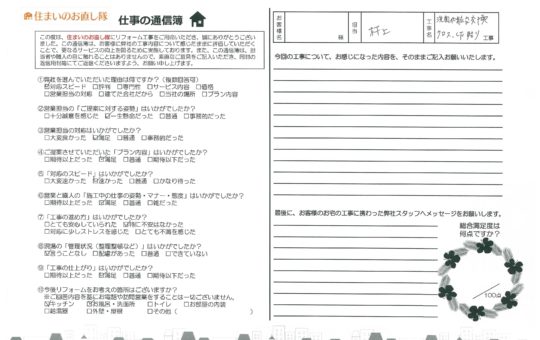 住まいのお直し隊
仕事の通信簿
この度は、住まいのお直し隊にリフォーム工事をご用命いただき、誠にありがとうござい
ました。この通信簿は、お客様に弊社の工事内容について感じたままに評価していただく
①弊社を選んでいただいた理由は何ですか?(複数回答可)
☑対応スピード □評判 □専門性 □サービス内容 □価格
□営業担当の対応 □建てた会社だから □当社の場所 □プラン内容
②営業担当の「ご提案に対する姿勢」はいかがでしたか?
□十分誠意を感じた ☑一生懸命だった □普通 □事務的だった
③営業担当の対応はいかがでしたか?
□大変良かった ☑満足 □普通 □事務的だった
④ご提案させていただいた「プラン内容」はいかがでしたか?
□期待以上だった ☑満足 □普通 □期待以下だった
⑤「対応のスピード」はいかがでしたか?
□大変速かった ☑速かった □普通 □かなり待った
⑥営業と職人の「施工中の仕事の姿勢・マナー・態度」はいかがでしたか?
□期待以上だった ☑満足 □普通 □雑だった
⑦「工事の進め方」はいかがでしたか?
□とても安心していられた ☑特に不安はなかった
□対応に少しストレスを感じた □とても不満を感じた
⑧現場の「管理状況(整理整頓など)」はいかがでしたか?
☑言うことなし □配慮があった □普通 □できていない
⑨「工事の仕上がり」はいかがでしたか?
□期待以上だった ☑満足 □普通 □期待以下だった
⑩今後リフォームをお考えの箇所はございますか?
※ご回答内容を基にお電話や訪問営業をすることは一切ございません。
☑キッチン ☑お風呂・洗面所 □トイレ □お部屋の内装
□給湯器 □外壁・屋根 □その他( )
お客様名 様
担当 村上
工事名 工事
今回の工事について、お感じになった内容を、そのままご記入お願いいたします。
最後に、お客様のお宅の工事に携わった弊社スタッフへメッセージをお願いします。
総合満足度は
何点ですか?
/100点